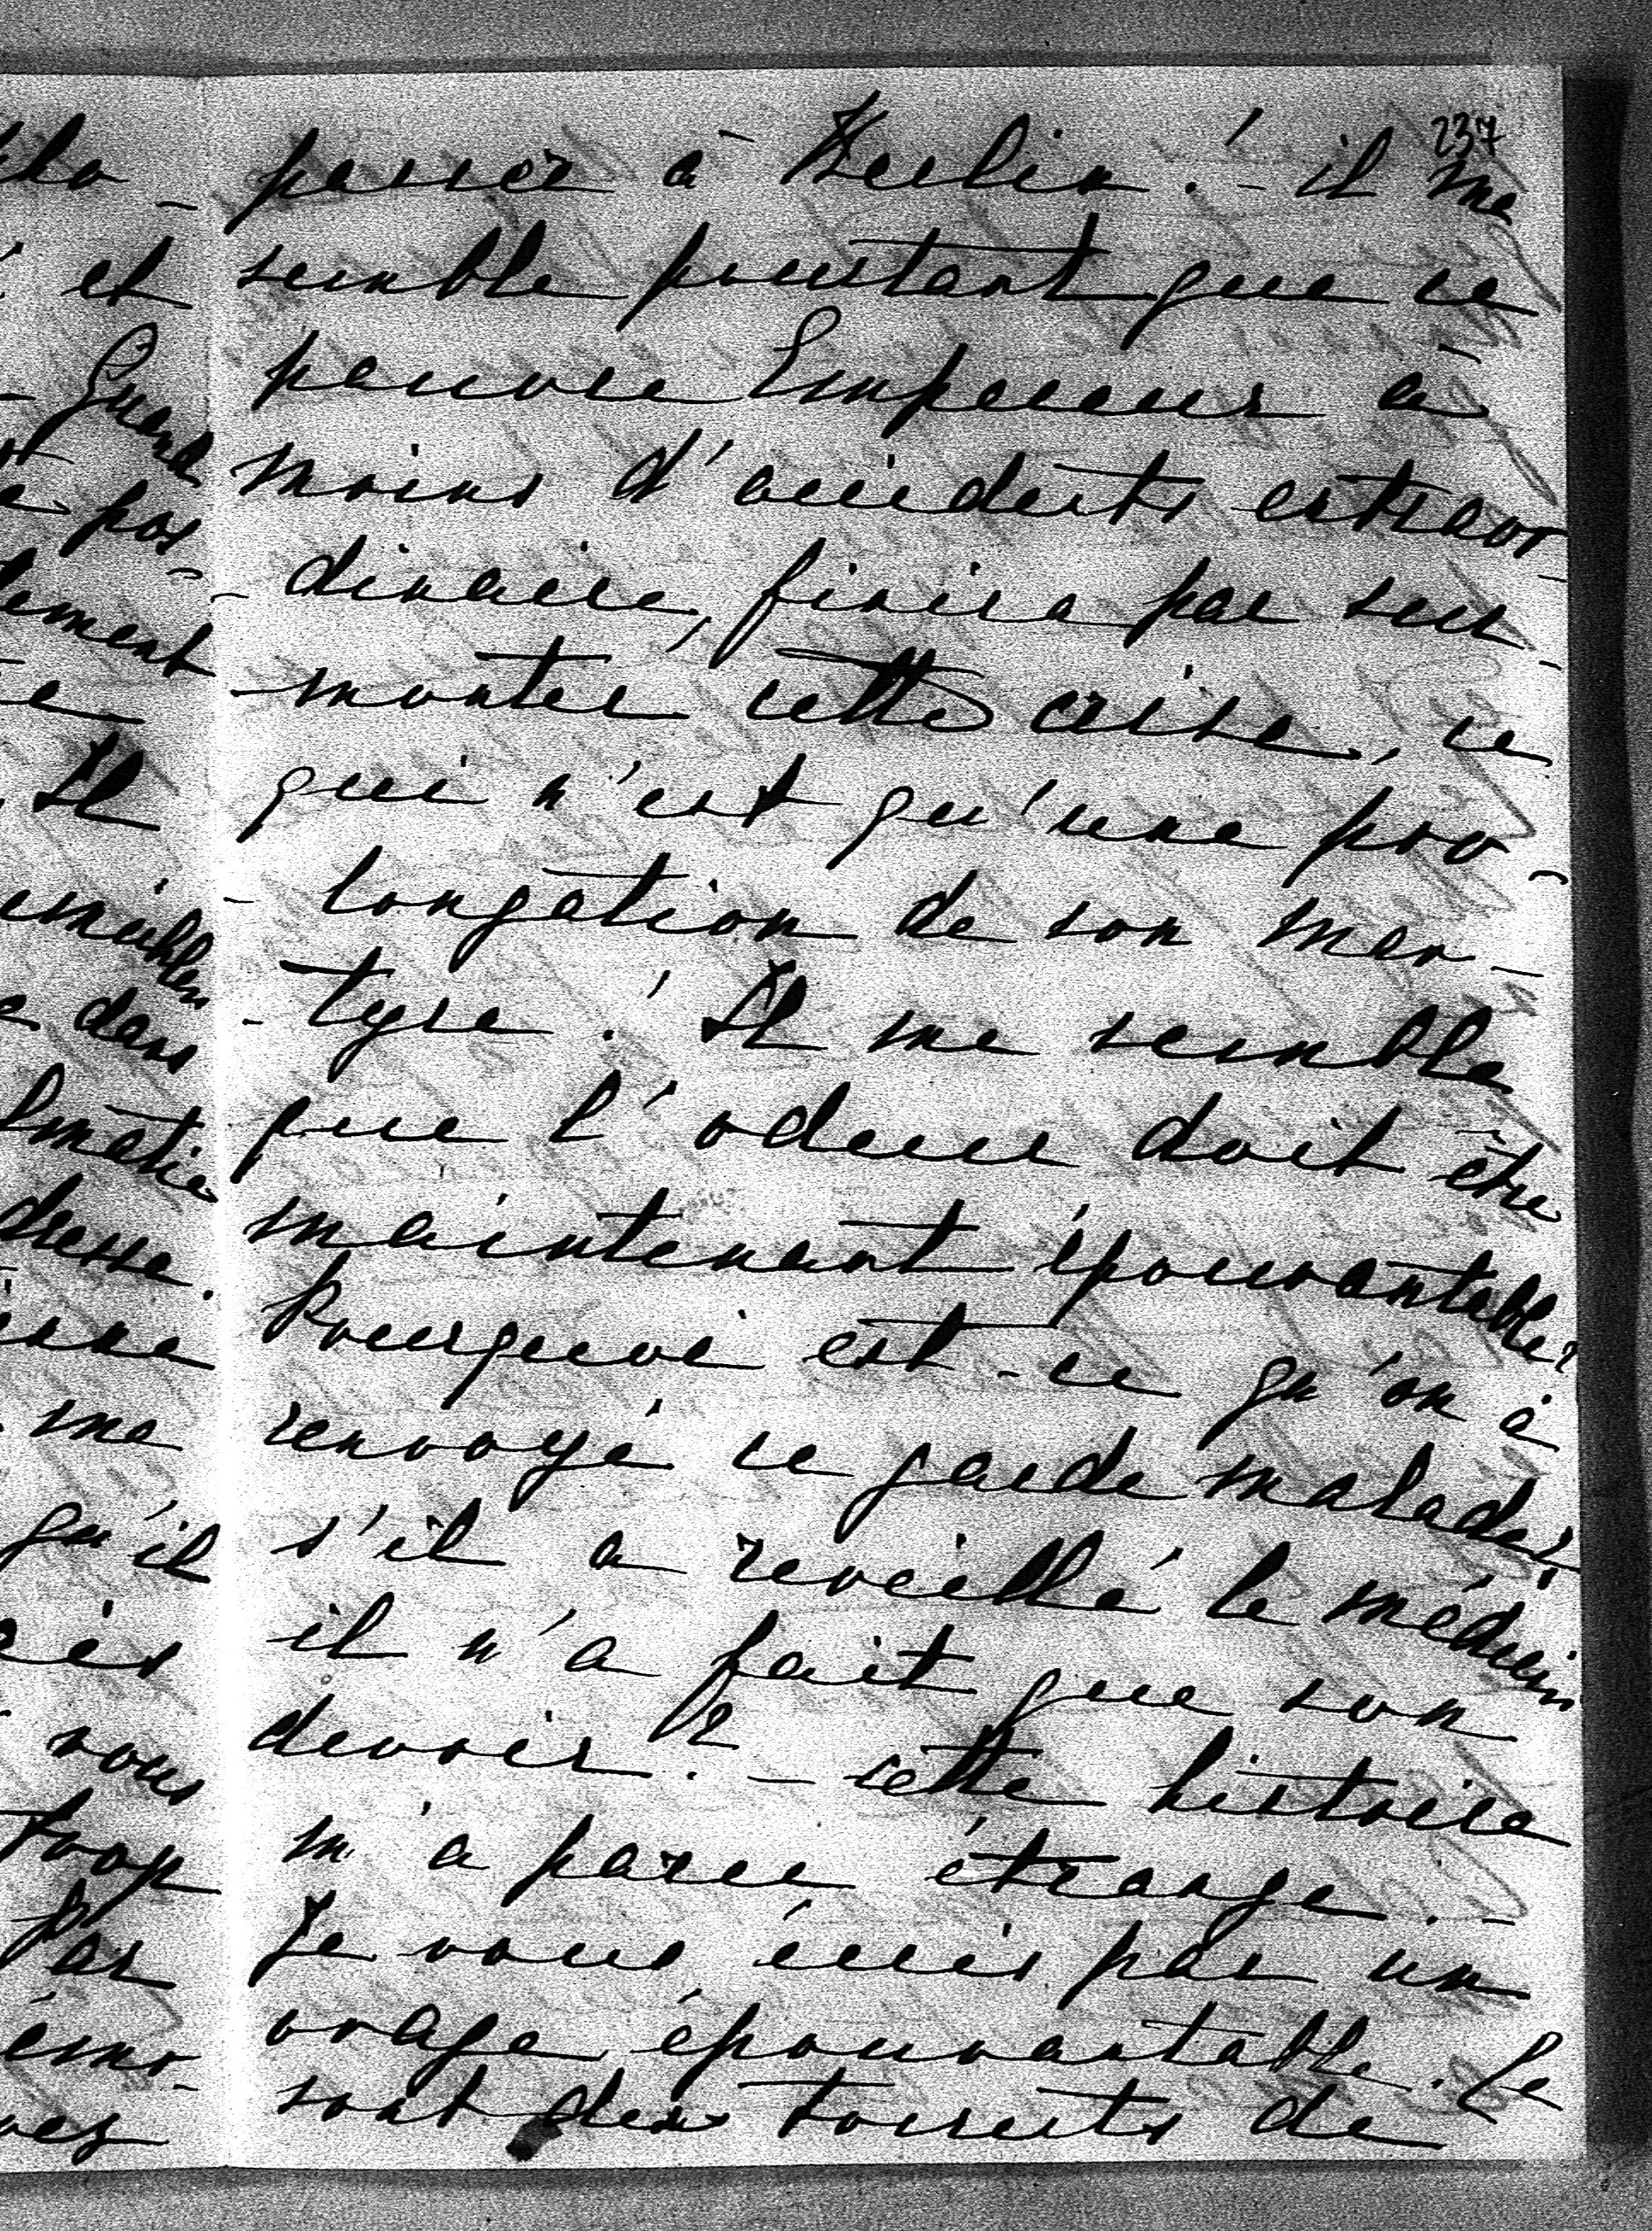 237
passer à Berlin! - il me
semble pourtant que ce
pauvre Empereur à
moins d'accidents extraor-
-dinaire, finira par sur-
-monter cette crise, ce
qui n'est qu'une pro-
-longation de son mar-
-tyre! Il me semble
que l'odeur doit être
maintenant épouvantable?
Pourquoi est-ce qu'on à
renvoyé ce garde malade?
s'il a reveillé le médecin
il n'a fait que son
devoir? - cette histoire
m'a paru étrange. -
Je vous écris par un
orage épouvantable. Ce
sont des torrents de
et
Quand
pas
Il
dans
me
qu'il
vous